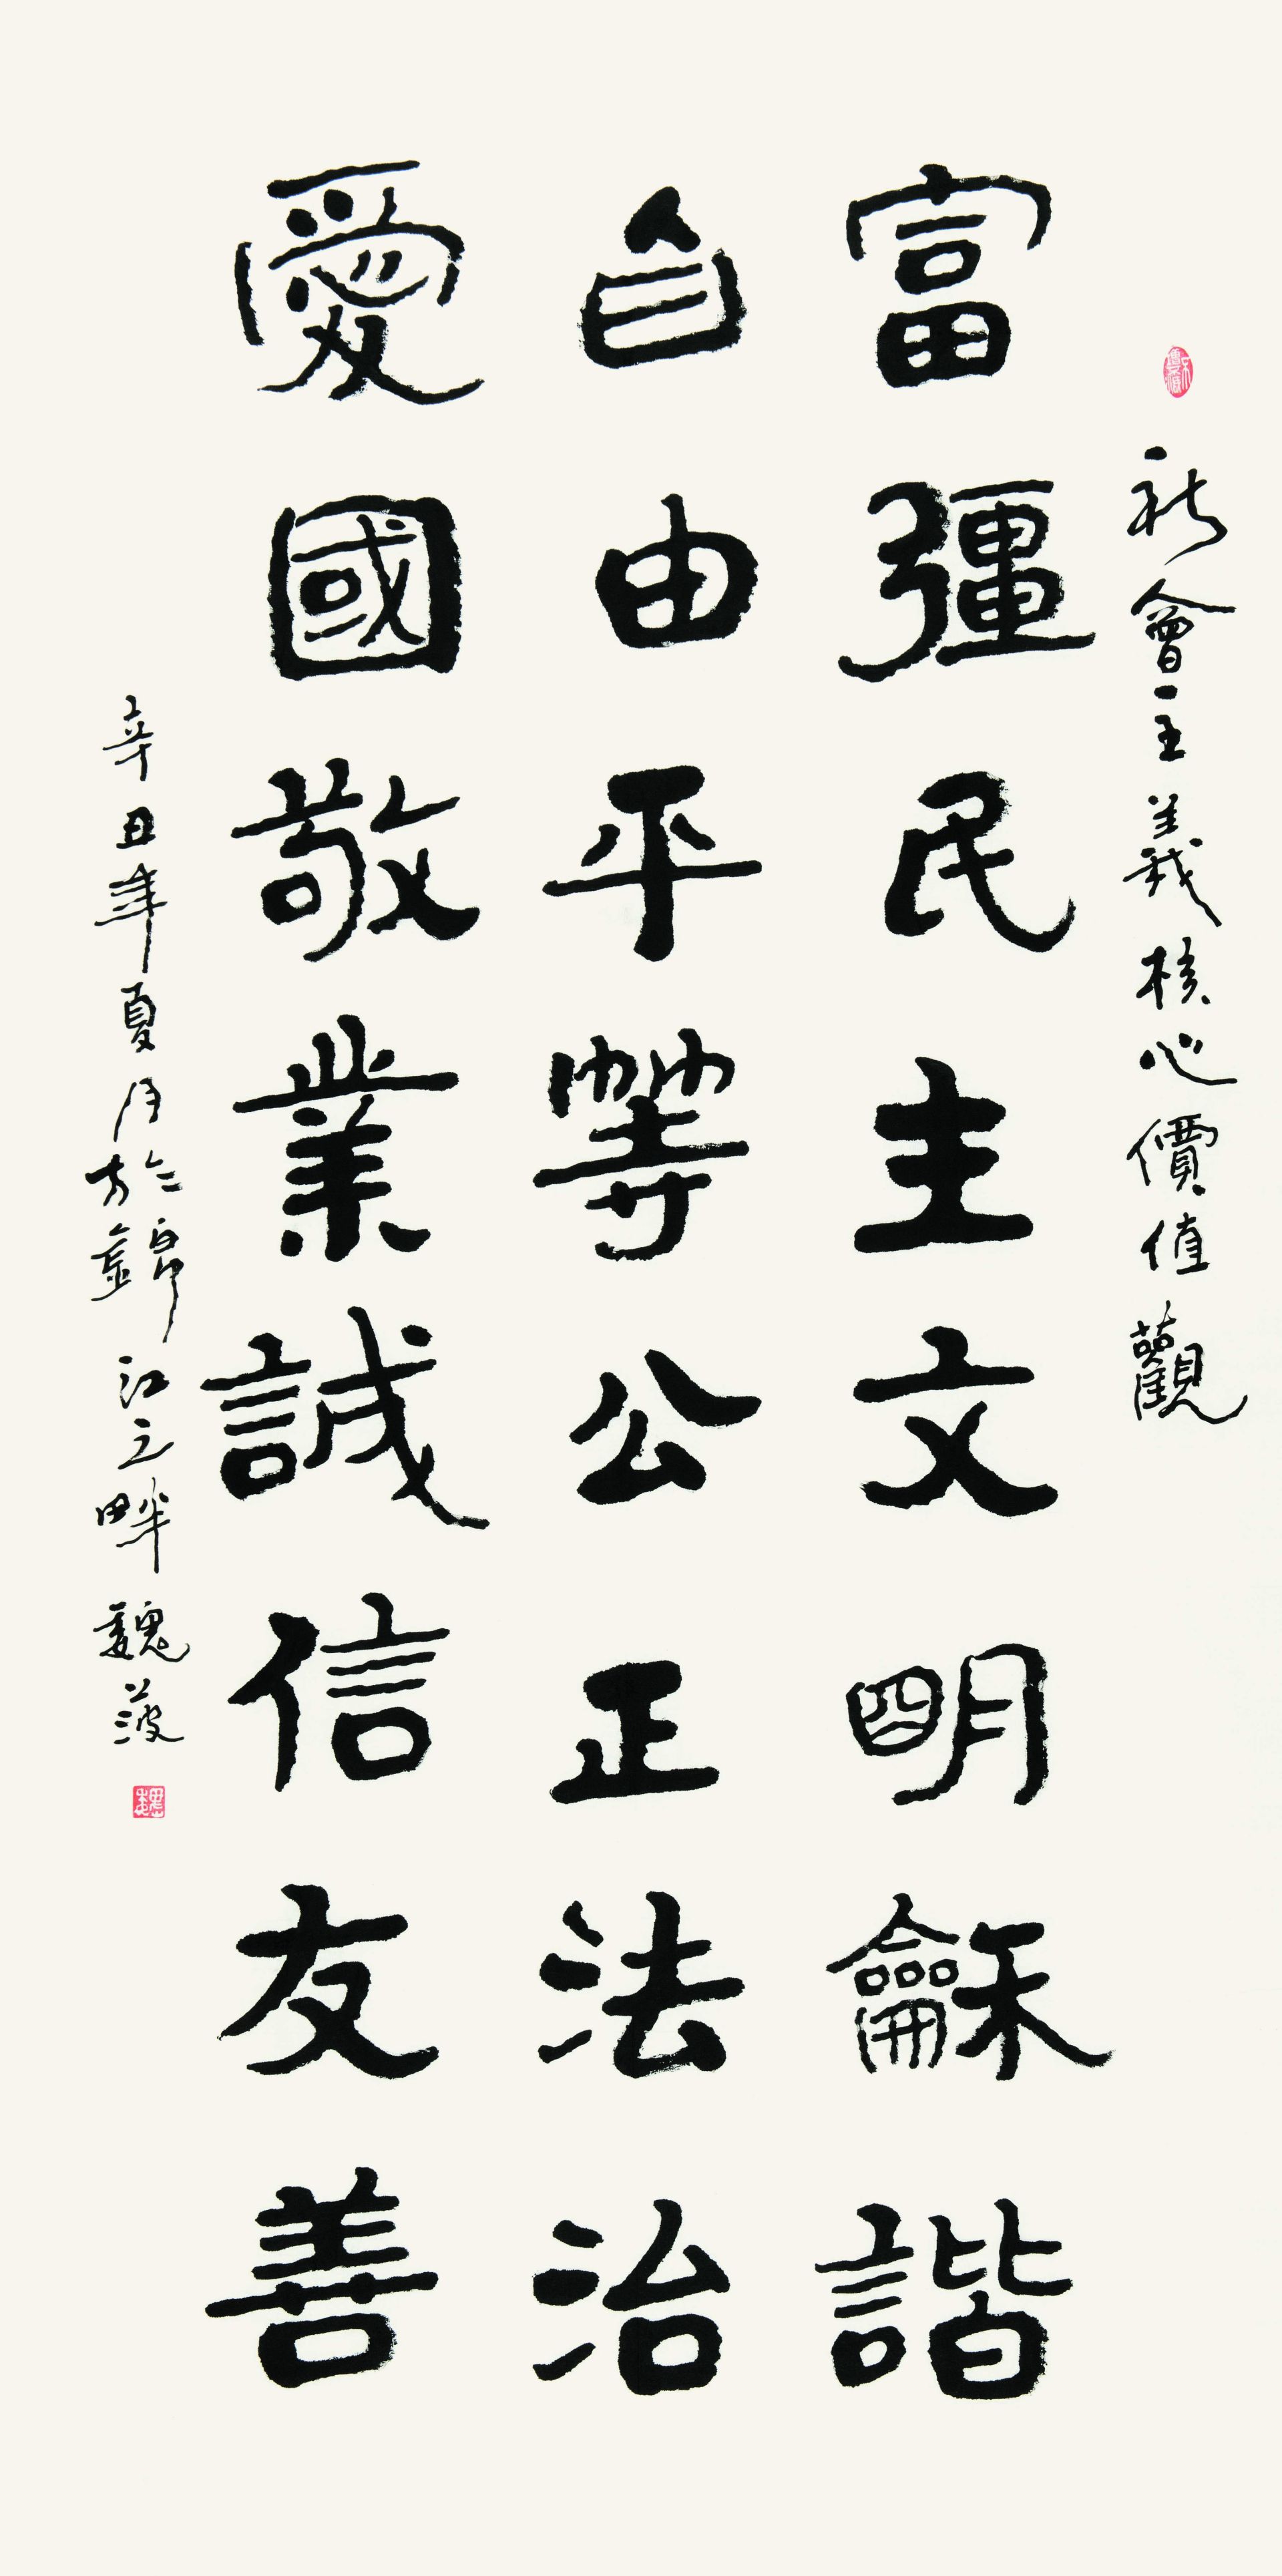 社會主義核心價值觀
富彊民主文明龢諧
自由平等公正法治
愛國敬業誠信友善
辛丑年夏月於錦江之畔魏菠
魏